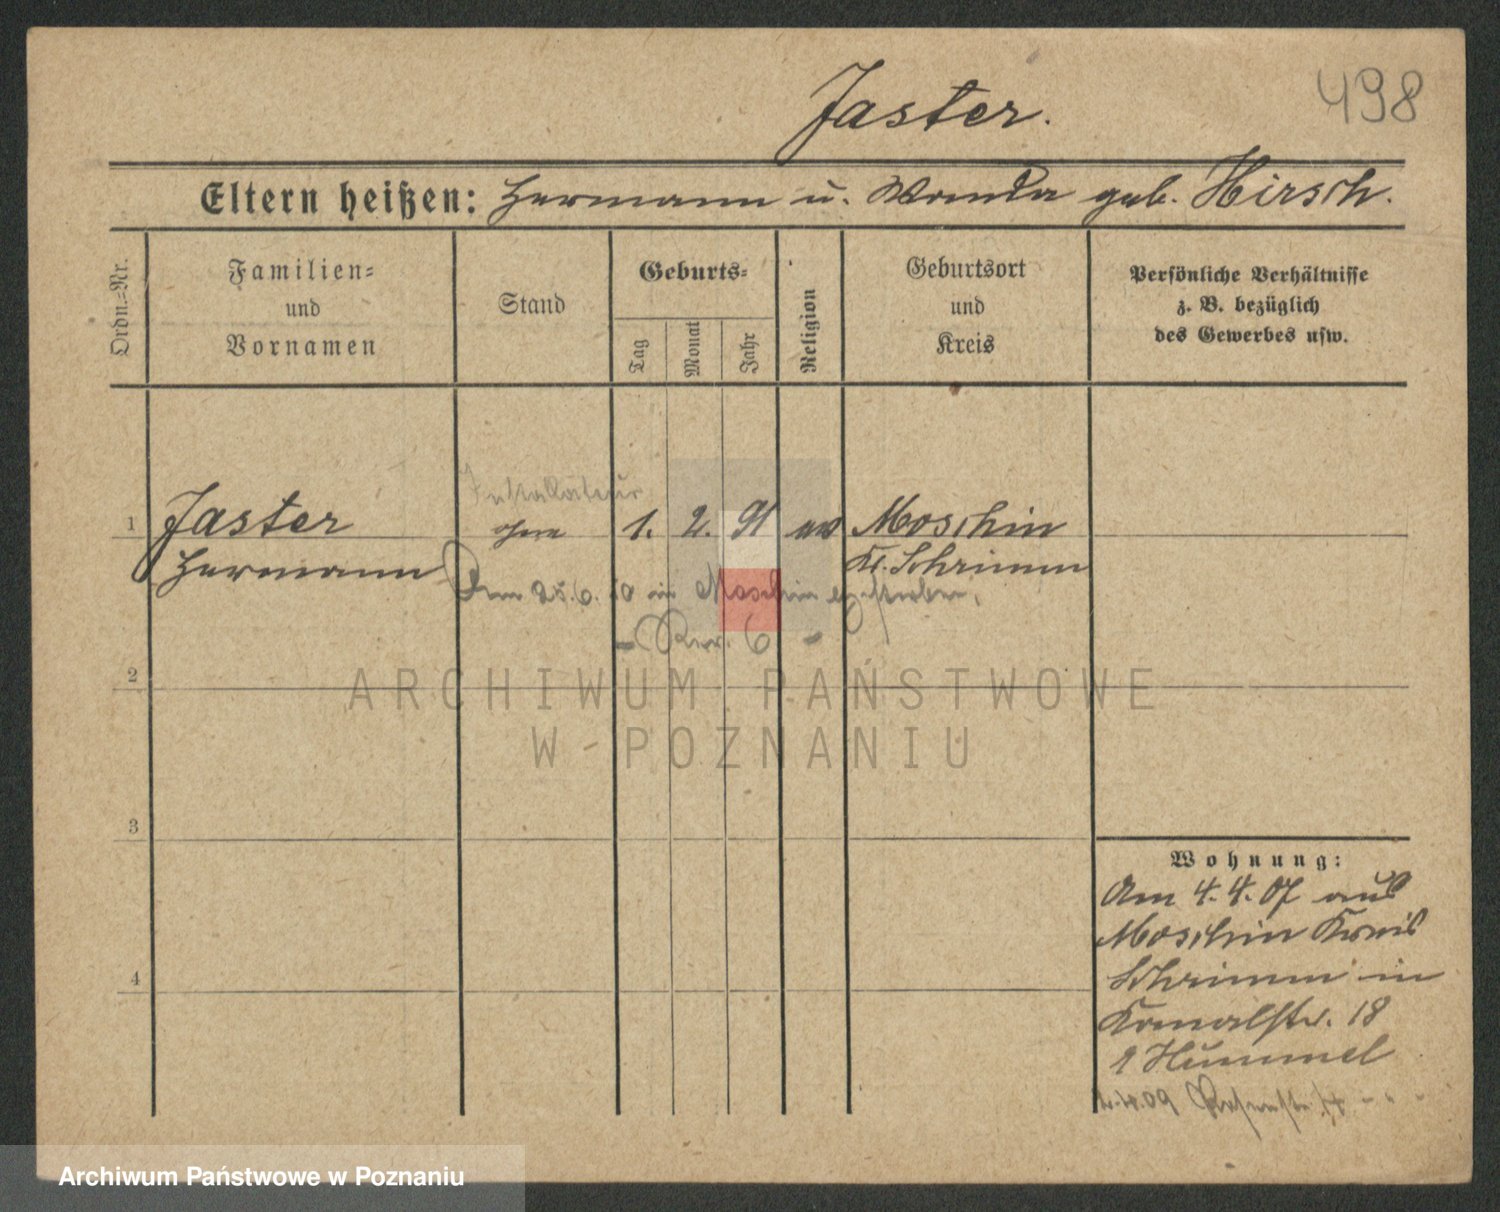 498
Jaster.
Eltern heißen: Hermann u. Wanda geb. Hirsch.
Ordn.=Nr.
Familien=
und
Vornamen
Stand
Geburts=
Tag
Monat
Jahr
Religion
Geburtsort
und
Kreis
Persönliche Verhältnisse
z. B. bezüglich
des Gewerbes usw.
Installateur
1 Jaster ohne 1. 2. 91 ev Moschin
Hermann Kr. Schrimm
Am 25.6. 10 in Moschin gestorben,
2
ARCHIWUM PAŃSTWOWE
W POZNANIU
3
4
Wohnung:
Am 4. 4. 07 aus
Moschin Kreis
Schrimm in
Kanalstr. 18
Hummel
4.09
Archiwum Państwowe w Poznaniu